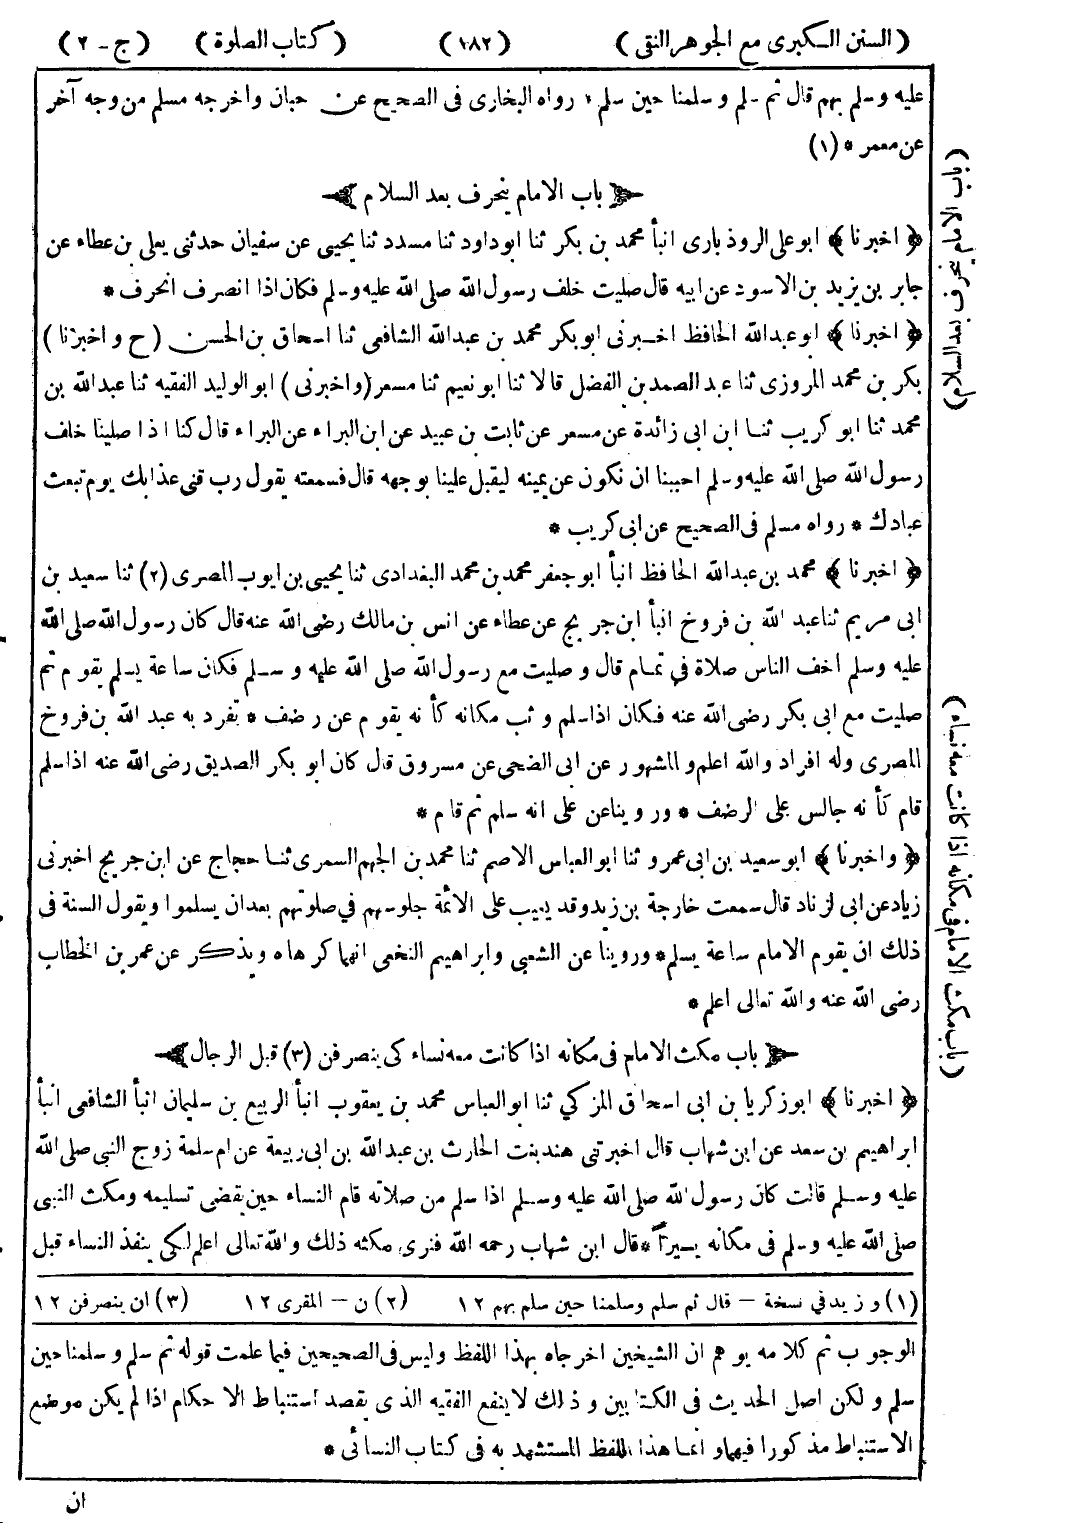 ( السنن الكبرى مع الجوهر النقى ) ( ١٨٢ ) ( كتاب الصلوة ) ( ج - ٢ )
عليه وسلم بهم قال ثم سلم وسلمنا حين سلم * رواه البخارى فى الصحيح عن حبان واخرجه مسلم من وجه آخر
عن معمر * (١)
باب الامام ينحرف بعد السلام
﴿ اخبرنا ﴾ ابو على الروذبارى انبأ محمد بن بكر ثنا ابو داود ثنا مسدد ثنا يحيى عن سفيان حدثنى يعلى بن عطاء عن
جابر بن يزيد بن الاسود عن ابيه قال صليت خلف رسول الله صلى الله عليه وسلم فكان اذا انصرف انحرف *
﴿ اخبرنا ﴾ ابو عبد الله الحافظ اخبرنى ابو بكر محمد بن عبد الله الشافعى ثنا اسحاق بن الحسن ( ح و اخبرنا )
بكر بن محمد المروزى ثنا عبد الصمد بن الفضل قالا ثنا ابو نعيم ثنا مسعر ( واخبرنى ) ابو الوليد الفقيه ثنا عبد الله بن
محمد ثنا ابو كريب ثنا ابن ابى زائدة عن مسعر عن ثابت بن عبيد عن ابن البراء عن البراء قال كنا اذا صلينا خلف
رسول الله صلى الله عليه وسلم احببنا ان نكون عن يمينه ليقبل علينا بوجهه قال فسمعته يقول رب قنى عذابك يوم تبعث
عبادك * رواه مسلم فى الصحيح عن ابى كريب *
﴿ اخبرنا ﴾ محمد بن عبد الله الحافظ انبأ ابو جعفر محمد بن محمد البغدادى ثنا يحيى بن ايوب المصرى (٢) ثنا سعيد بن
ابى مريم ثنا عبد الله بن فروخ انبأ ابن جريج عن عطاء عن انس بن مالك رضى الله عنه قال كان رسول الله صلى الله
عليه وسلم اخف الناس صلاة فى تمام قال و صليت مع رسول الله صلى الله عليه و سلم فكان ساعة يسلم يقوم ثم
صليت مع ابى بكر رضى الله عنه فكان اذا سلم وثب مكانه كأنه يقوم عن رضف * تفرد به عبد الله بن فروخ
المصرى وله افراد والله اعلم والمشهور عن ابى الضحى عن مسروق قال كان ابو بكر الصديق رضى الله عنه اذا سلم
قام كأنه جالس على الرضف * وروينا عن على انه سلم ثم قام *
﴿ واخبرنا ﴾ ابو سعيد بن ابى عمرو ثنا ابو العباس الاصم ثنا محمد بن الجهم السمرى ثنا حجاج عن ابن جريج اخبرنى
زياد عن ابى الزناد قال سمعت خارجة بن زيد وقد يعيب على الائمة جلوسهم فى صلوتهم بعد ان يسلموا ويقول السنة فى
ذلك ان يقوم الامام ساعة يسلم * وروينا عن الشعبى وابراهيم النخعى انهما كرهاه ويذكر عن عمر بن الخطاب
رضى الله عنه والله تعالى اعلم *
باب مكث الامام فى مكانه اذا كانت معه نساء كى ينصرفن (٣) قبل الرجال
﴿ اخبرنا ﴾ ابو زكريا بن ابى اسحاق المزكي ثنا ابو العباس محمد بن يعقوب انبأ الربيع بن سليمان انبأ الشافعى انبأ
ابراهيم بن سعد عن ابن شهاب قال اخبرتنى هند بنت الحارث بن عبد الله بن ابى ربيعة عن ام سلمة زوج النبى صلى الله
عليه وسلم قالت كان رسول الله صلى الله عليه وسلم اذا سلم من صلاته قام النساء حين يقضى تسليمه ومكث النبى
صلى الله عليه وسلم فى مكانه يسيرا * قال ابن شهاب رحمه الله فنرى مكثه ذلك والله تعالى اعلم لكى ينفذ النساء قبل
(١) و زيد في نسخة - قال ثم سلم وسلمنا حين سلم بهم ١٢ (٢) ن - المقرى ١٢ (٣) ان ينصرفن ١٢
الوجوب ثم كلامه يوهم ان الشيخين اخرجاه بهذا اللفظ وليس فى الصحيحين فيما علمت قوله ثم سلم و سلمنا حين
سلم و لكن اصل الحديث فى الكتابين و ذلك لا ينفع الفقيه الذى يقصد استنباط الاحكام اذا لم يكن موضع
الاستنباط مذكورا فيهما و انما هذا اللفظ المستشهد به فى كتاب النسائى *
ان
( باب الامام ينحرف بعد السلام )
( باب مكث الامام فى مكانه اذا كانت معه نساء )